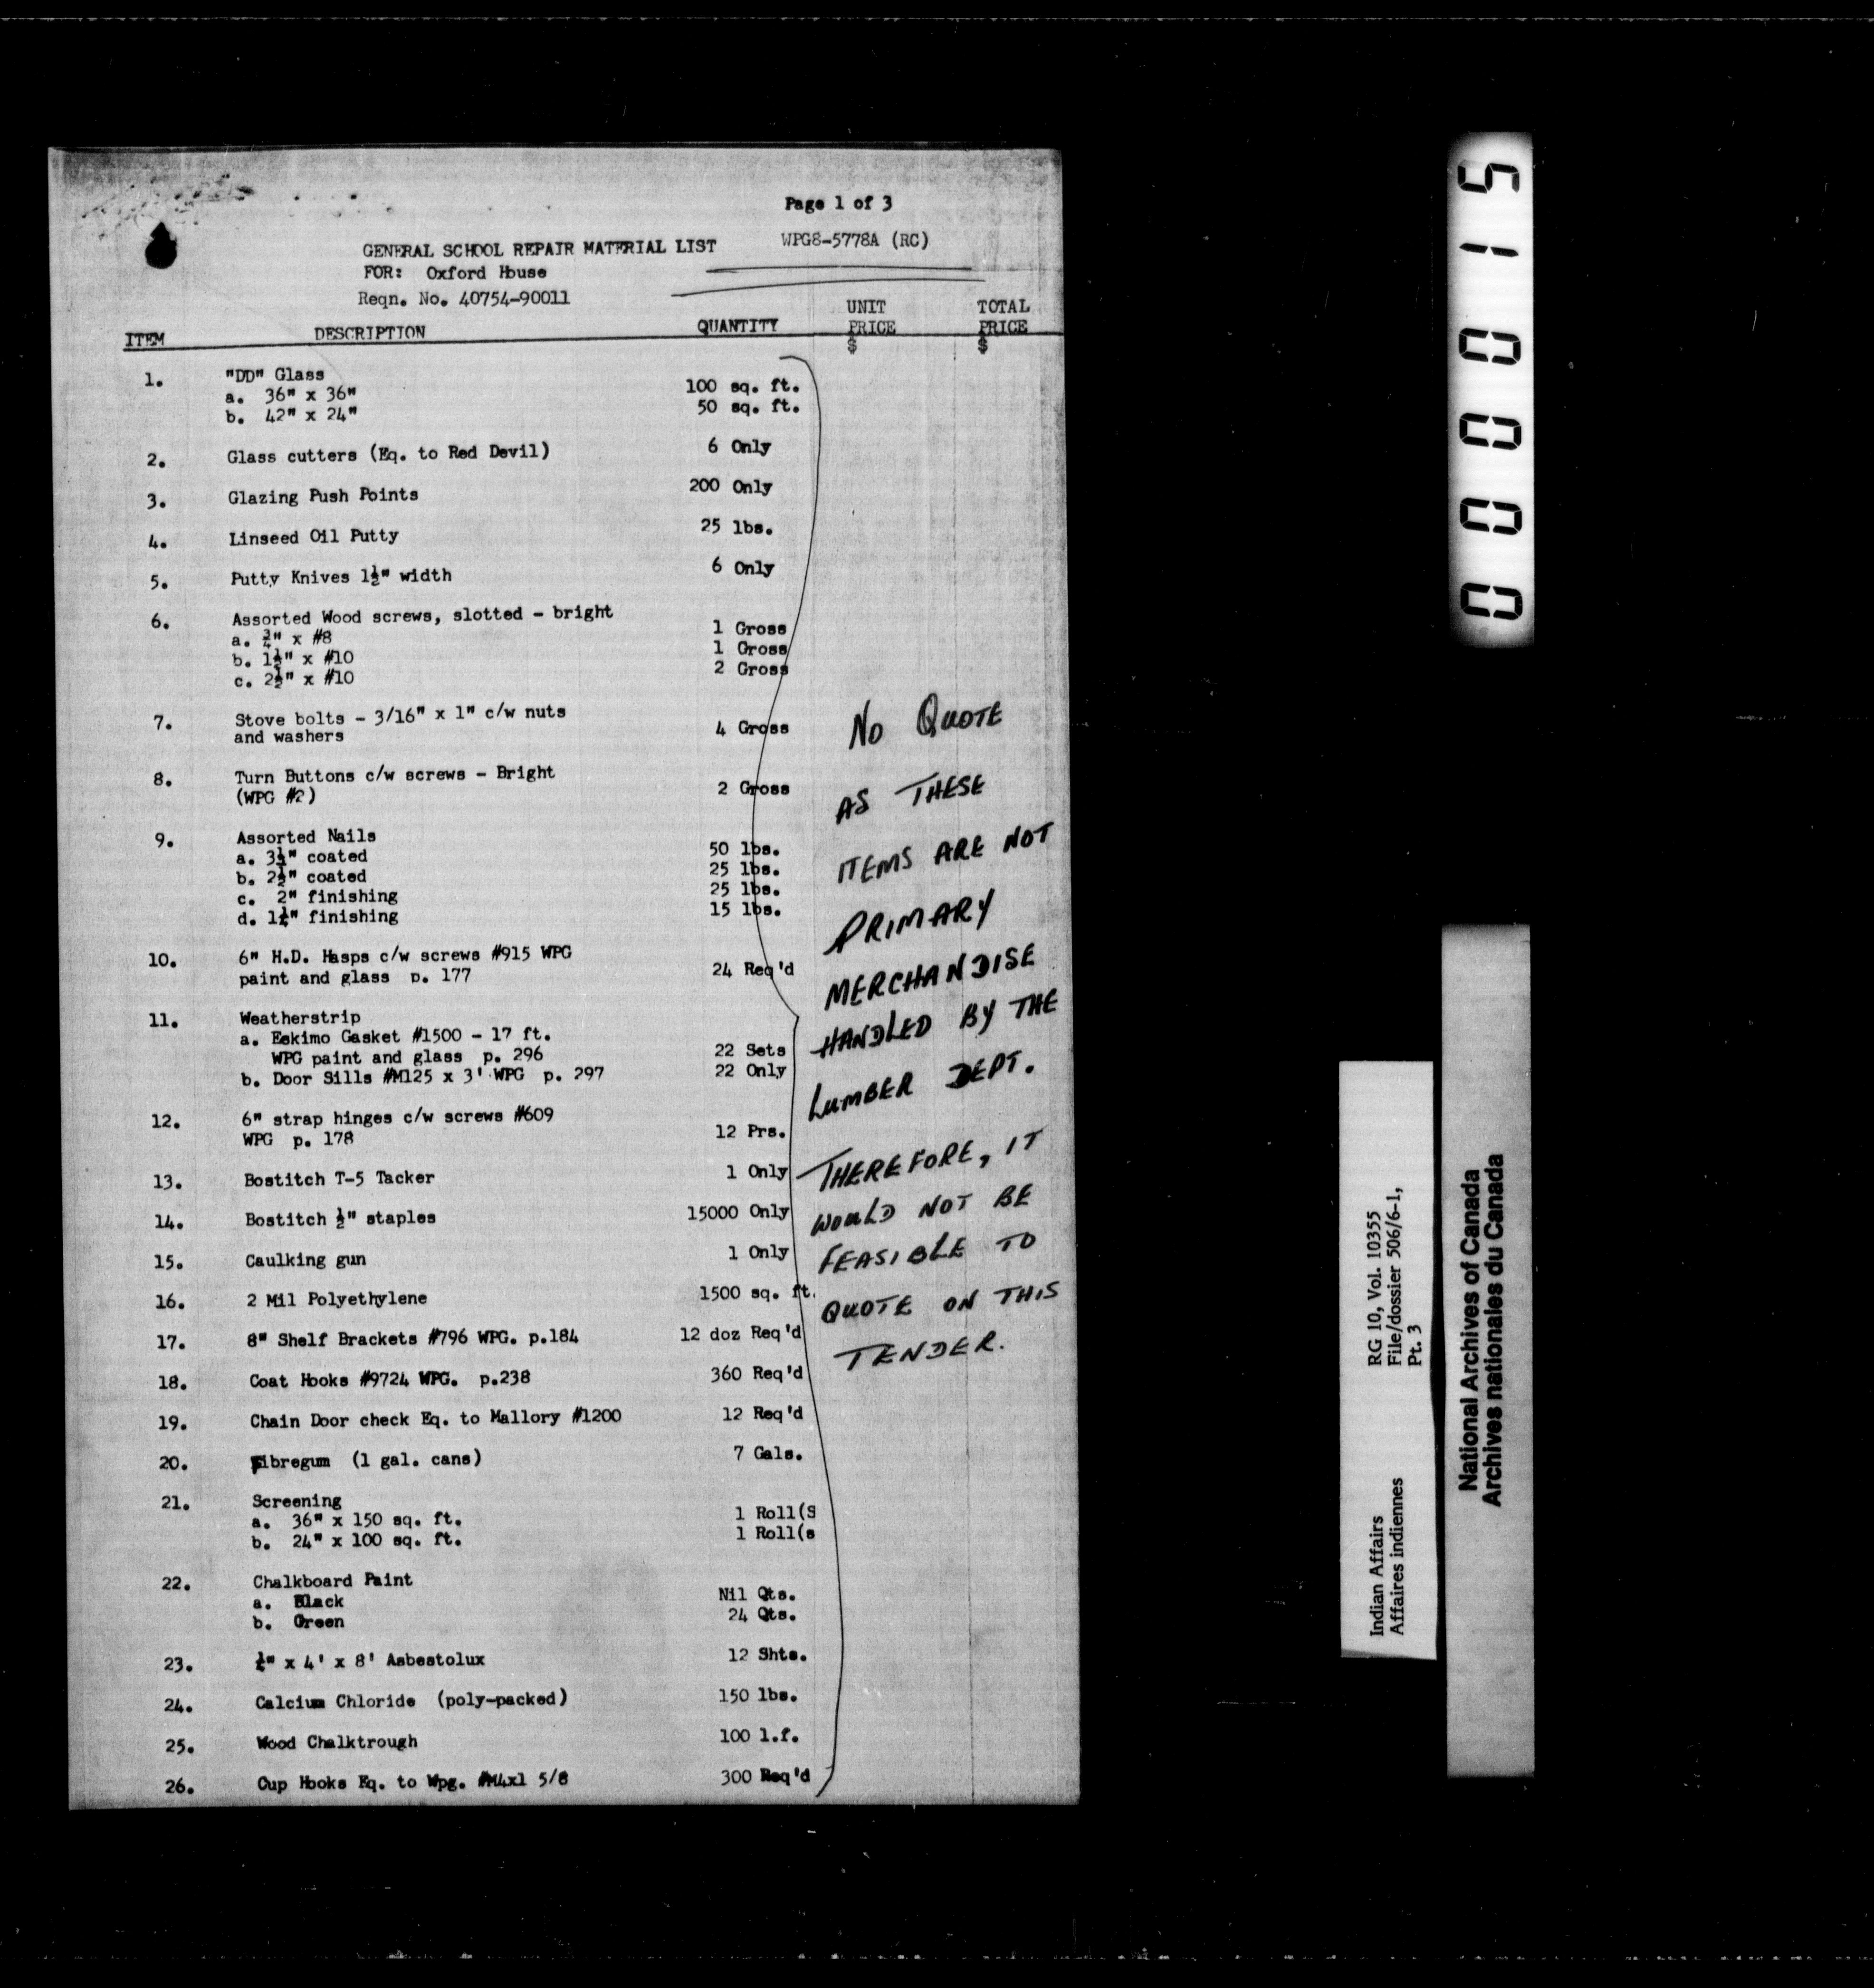 Page 1 of 3
WPG8-5778A (RC)
GENERAL SCHOOL REPAIR MATERIAL LIST
FOR: Oxford House
Reqn. No. 40754-90011
ITEM DESCRIPTION QUANTITY UNIT PRICE $ TOTAL PRICE $
1. "DD" Glass
a. 36" x 36" 100 sq. ft.
b. 42" x 24" 50 sq. ft.
2. Glass cutters (Eq. to Red Devil) 6 Only
3. Glazing Push Points 200 Only
4. Linseed Oil Putty 25 lbs.
5. Putty Knives 1½" width 6 Only
6. Assorted Wood screws, slotted - bright
a. ¾" x #8 1 Gross
b. 1½" x #10 1 Gross
c. 2½" x #10 2 Gross
7. Stove bolts - 3/16" x 1" c/w nuts
and washers 4 Gross
8. Turn Buttons c/w screws - Bright
(WPG #2) 2 Gross
9. Assorted Nails
a. 3¼" coated 50 lbs.
b. 2½" coated 25 lbs.
c. 2" finishing 25 lbs.
d. 1¼" finishing 15 lbs.
10. 6" H.D. Hasps c/w screws #915 WPG
paint and glass p. 177 24 Req'd
11. Weatherstrip
a. Eskimo Gasket #1500 - 17 ft.
WPG paint and glass p. 296 22 Sets
b. Door Sills #M125 x 3' WPG p. 297 22 Only
12. 6" strap hinges c/w screws #609
WPG p. 178 12 Prs.
13. Bostitch T-5 Tacker 1 Only
14. Bostitch ½" staples 15000 Only
15. Caulking gun 1 Only
16. 2 Mil Polyethylene 1500 sq. ft.
17. 8" Shelf Brackets #796 WPG. p.184 12 doz Req'd
18. Coat Hooks #9724 WPG. p.238 360 Req'd
19. Chain Door check Eq. to Mallory #1200 12 Req'd
20. Fibregum (1 gal. cans) 7 Gals.
21. Screening
a. 36" x 150 sq. ft. 1 Roll(S
b. 24" x 100 sq. ft. 1 Roll(s
22. Chalkboard Paint
a. Black Nil Qts.
b. Green 24 Qts.
23. ¼" x 4' x 8' Asbestolux 12 Shts.
24. Calcium Chloride (poly-packed) 150 lbs.
25. Wood Chalktrough 100 l.f.
26. Cup Hooks Eq. to Wpg. #M4x1 5/8 300 Req'd
NO QUOTE
AS THESE
ITEMS ARE NOT
PRIMARY
MERCHANDISE
HANDLED BY THE
LUMBER DEPT.
THEREFORE, IT
WOULD NOT BE
FEASIBLE TO
QUOTE ON THIS
TENDER.
000015
Indian Affairs RG 10, Vol. 10355
Affaires indiennes File/dossier 506/6-1,
Pt. 3
National Archives of Canada
Archives nationales du Canada